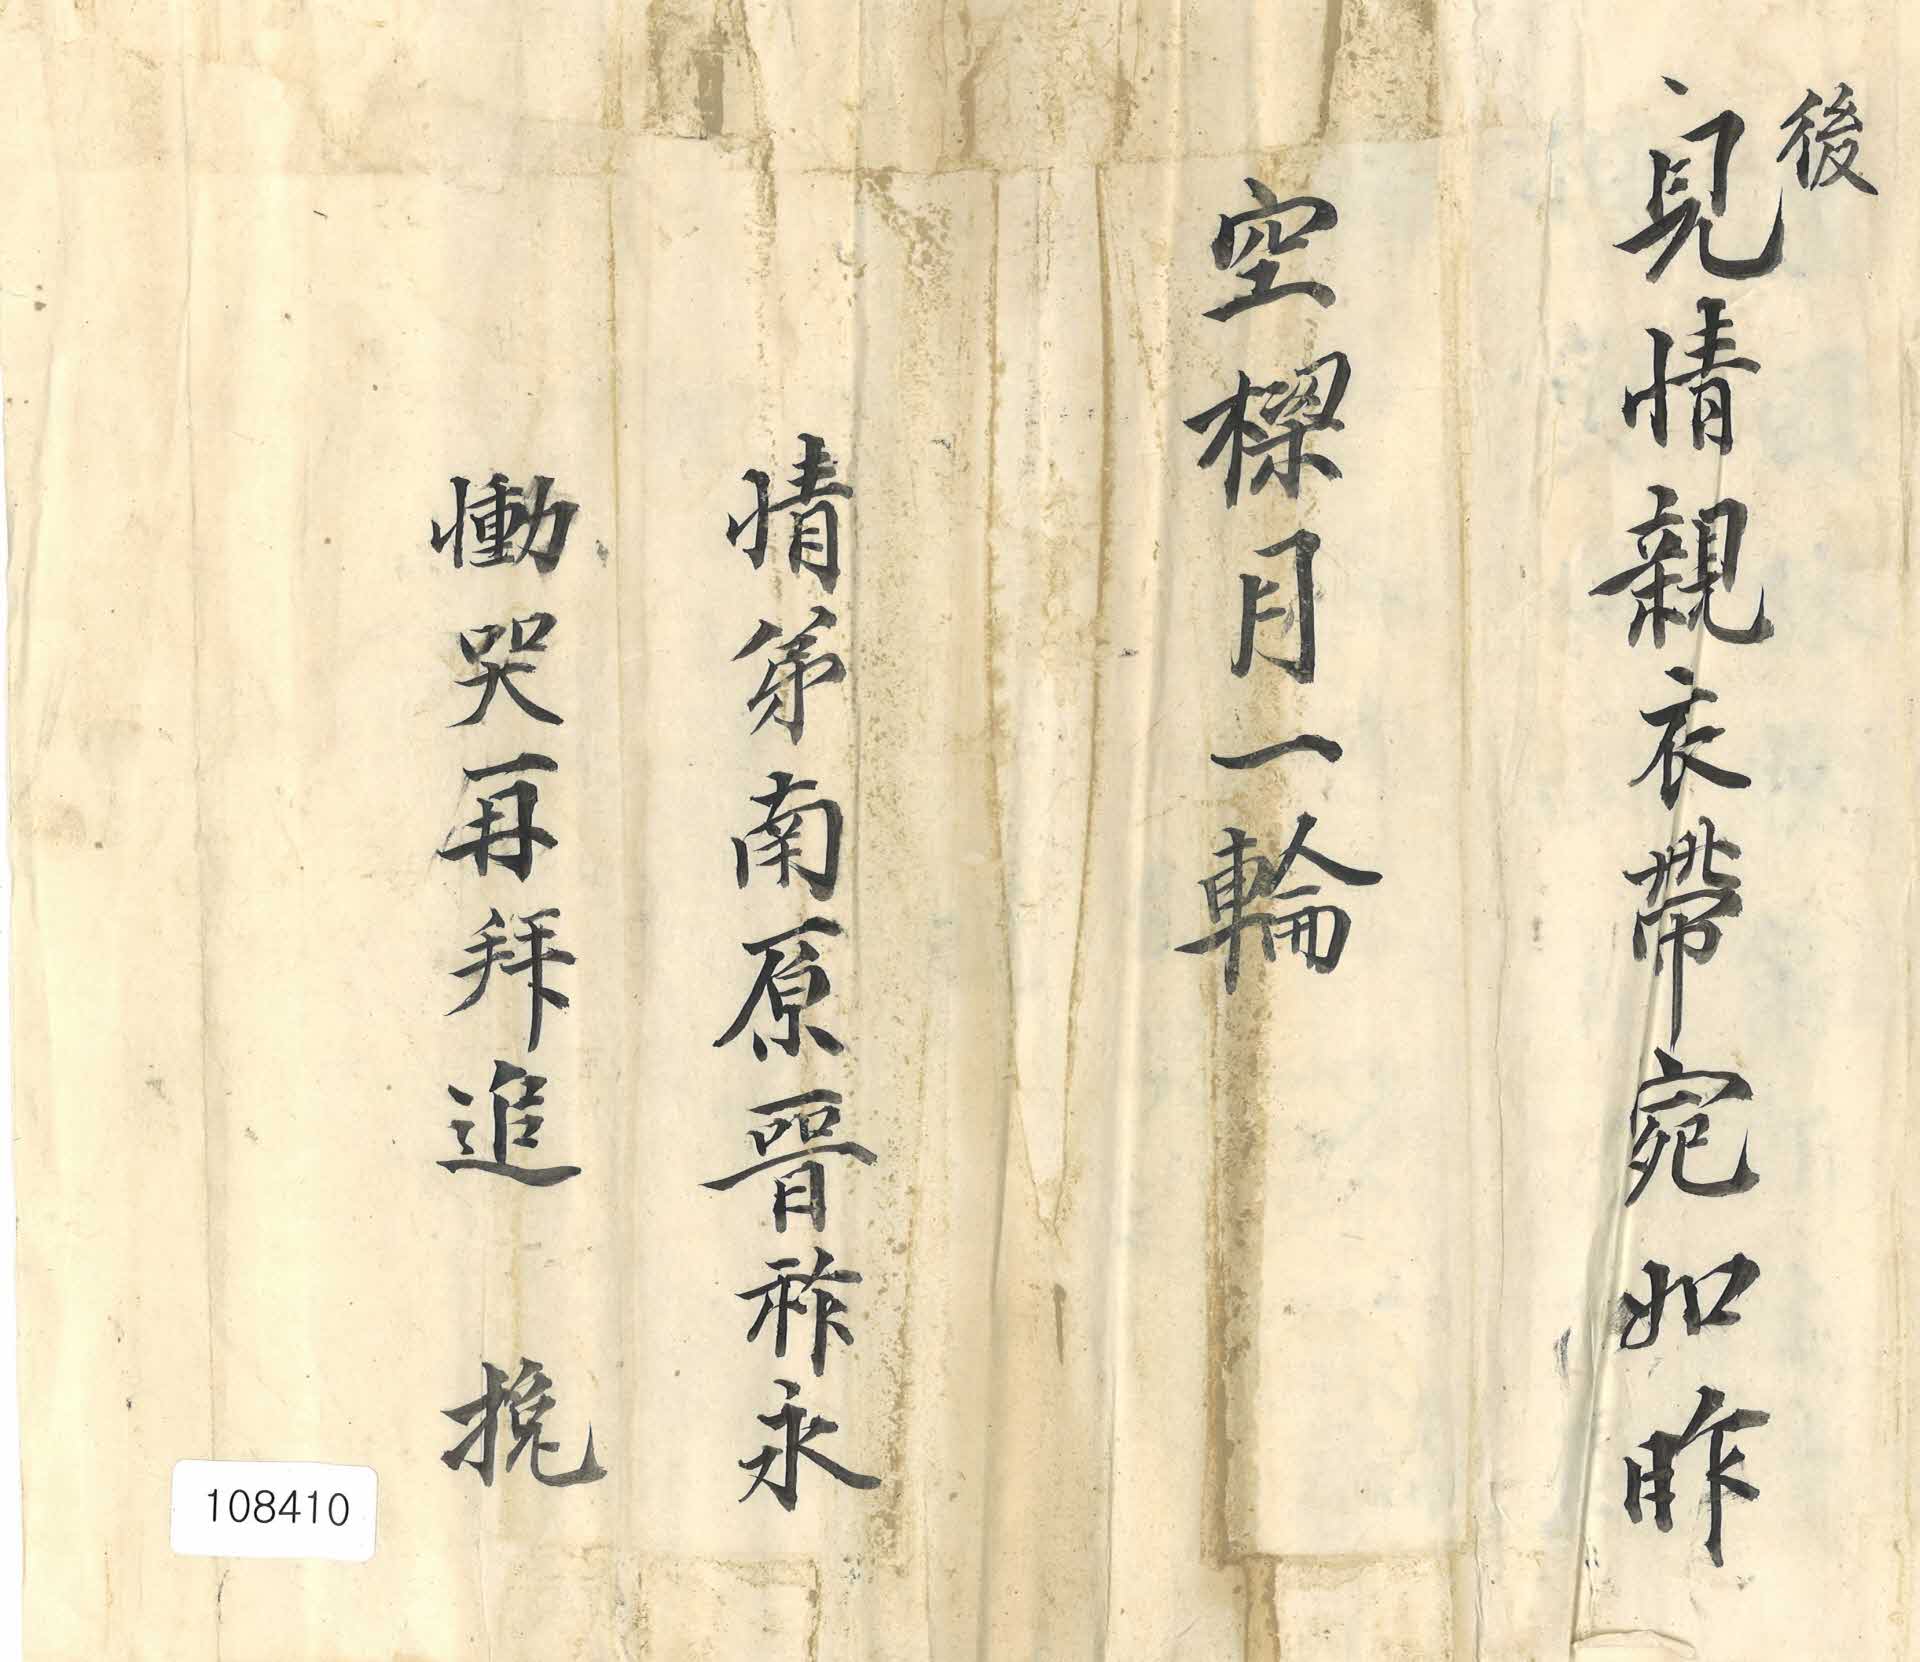 後
見情親衣帶宛如昨
空樑月一輪
情弟南原晉祚永
慟哭再拜追 挽
108410